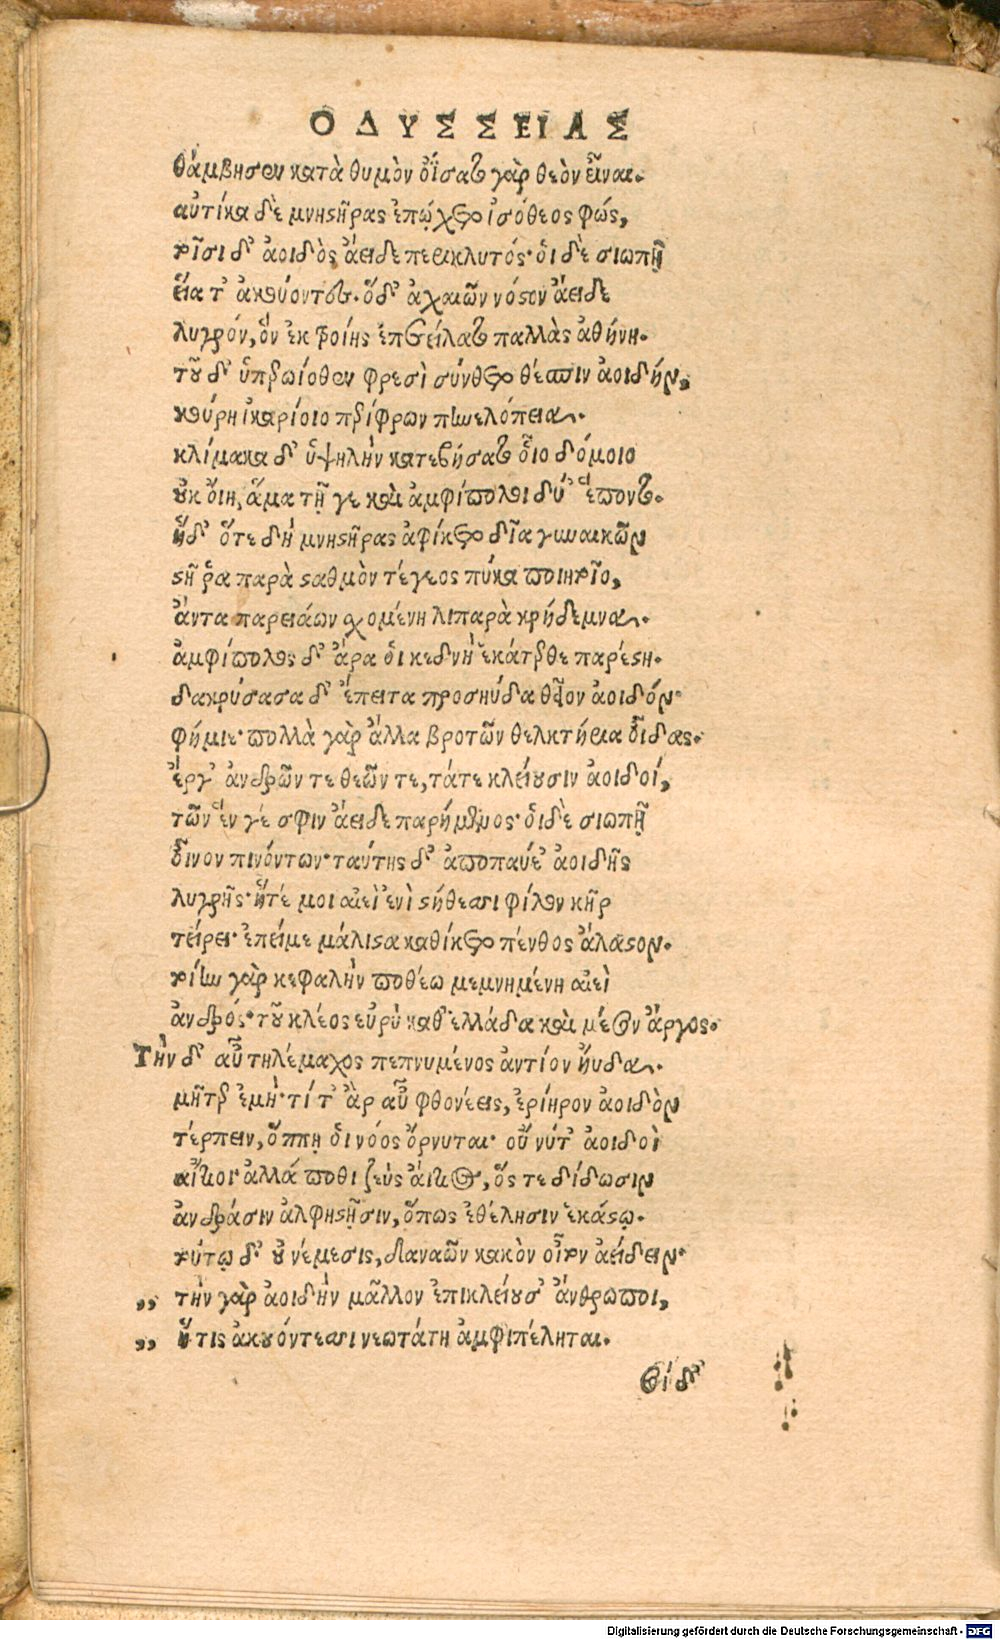 ΟΔΥΣΣΕΙΑΣ
θάμβησεν κατὰ θυμὸν ὀΐσατο γὰρ θεὸν εἶναι.
αὐτίκα δὲ μνηστῆρας ἐπῴχετο ἰσόθεος φώς,
τοῖσι δ' ἀοιδὸς ἄειδε περικλυτός· ὁι δὲ σιωπῇ
εἵατ' ἀκούοντες. ὅδ' ἀχαιῶν νόστον ἄειδε
λυγρόν, ὃν ἐκ τροίης ἐπετείλατο παλλὰς ἀθήνη.
τοῦ δ' ὑπερωίοθεν φρεσὶ σύνθετο θέσπιν ἀοιδήν,
κούρη ἰκαρίοιο περίφρων πηνελόπεια.
κλίμακα δ' ὑψηλὴν κατεβήσατο οἷο δόμοιο
οὐκ ὄιη, ἅμα τῇ γε καὶ ἀμφίπολοι δύ' ἕποντο.
ἡδ' ὅτε δὴ μνηστῆρας ἀφίκετο δῖα γυναικῶν
στῆ ῥα παρὰ σταθμὸν τέγεος πύκα ποιητοῖο,
ἄντα παρειάων σχομένη λιπαρὰ κρήδεμνα.
ἀμφίπολος δ' ἄρα ὁι κεδνὴ ἑκάτερθε παρέστη.
δακρύσασα δ' ἔπειτα προσηύδα θεῖον ἀοιδόν·
φήμιε· πολλὰ γὰρ ἄλλα βροτῶν θελκτήρια οἶδας.
ἔργ' ἀνδρῶν τε θεῶν τε, τάτε κλείουσιν ἀοιδοί,
τῶν ἕν γέ σφιν ἄειδε παρήμενος· ὁιδὲ σιωπῇ
οἶνον πινόντων· ταύτης δ' ἀποπαύε' ἀοιδῆς
λυγρῆς· ἥτέ μοι αἰεὶ ἐνὶ στήθεσσι φίλον κῆρ
τείρει· ἐπείμε μάλιστα καθίκετο πένθος ἄλαστον.
τοίην γὰρ κεφαλὴν ποθέω μεμνημένη αἰεὶ
ἀνδρός· τοῦ κλέος εὐρὺ καθ' ἑλλάδα καὶ μέσον ἄργος.
Τὴν δ' αὖ τηλέμαχος πεπνυμένος ἀντίον ηὔδα.
μῆτερ ἐμὴ· τί τ' ἂρ αὖ φθονέεις, ἐρίηρον ἀοιδὸν
τέρπειν, ὅππῃ ὁι νόος ὄρνυται· οὔ νύτ' ἀοιδοὶ
αἴτιοι· ἀλλά ποθι ζεὺς ἄιτιος, ὅς τε δίδωσιν
ἀνδράσιν ἀλφηστῇσιν, ὅπως ἐθέλησιν ἑκάστῳ.
τούτῳ δ' οὐ νέμεσις, δαναῶν κακὸν οἶτον ἀείδειν·
,, τὴν γὰρ ἀοιδὴν μᾶλλον ἐπικλείουσ' ἄνθρωποι,
,, ἥτις ἀκουόντεσσι νεωτάτη ἀμφιπέληται.
σοί δ'
Digitalisierung gefördert durch die Deutsche Forschungsgemeinschaft - DFG